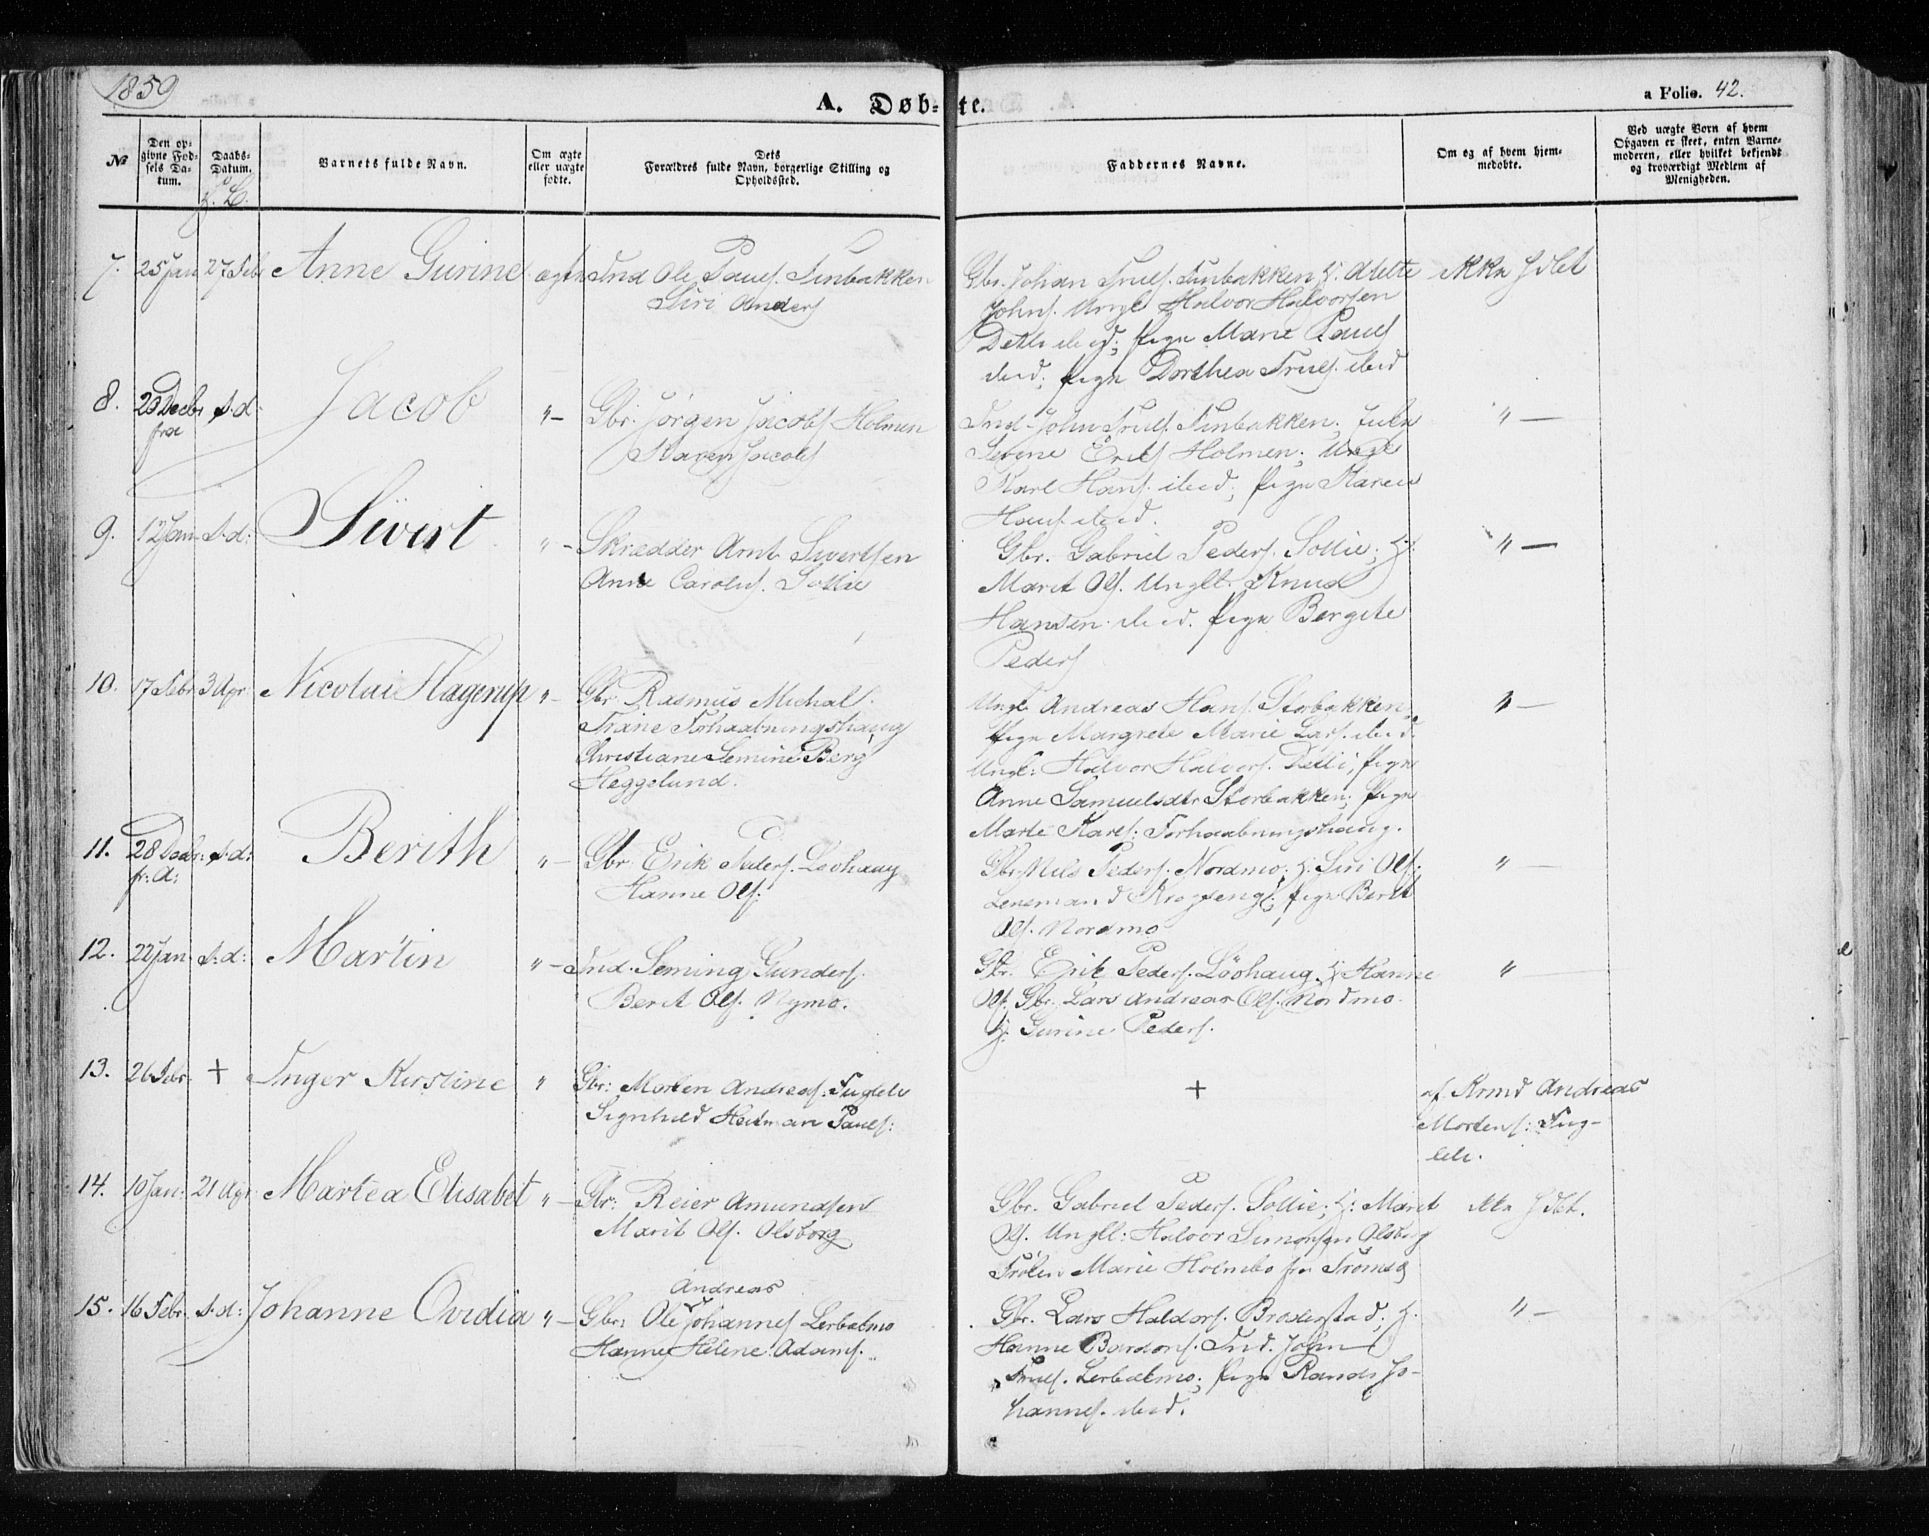 1859
A. Døb-te.
a Folio. 42.
No
Den opgivne Fødsels Datum.
Daabs-Datum.
Barnets fulde Navn.
Om ægte eller uægte fødte.
Dets Forældres fulde Navn, borgerlige Stilling og Opholdssted.
Faddernes Navne.
Om og af hvem hjemmedøbte.
Ved uægte Børn af hvem Opgaven er skeet, enten Barnemoderen, eller hvilket bekjendt og troværdigt Medlem af Menigheden.
7. 25 Jan 27 Feb Anne Gurine ægte Ind Ole Pauls. Finbakken
Siri Anders
Gbr. Johan Truls. Finbakken, H: Alette
Johns. Ungk Halvor Halvorsen
Detli ibid; Pige Marie Pauls
ibid; Pige Dorthea Truls. ibid
ikke hdbt
8. 20 Decbr s.d: Jacob "— Gbr: Jørgen Jacobs Holmen
Maren Jacobs
Ind John Truls. Finbakken;
Serene Eriks Holmen; Ungk
Karl Hans. ibid; Pige Maren
Hans. ibid.
"—
9. 12 Jan s.d: Sivert "— Skrædder Arnt Sivertsen
Anne Carolus. Sollie
Gbr. Gabriel Peders. Sollie; H:
Marit Ols. Ungk. Knud
Hansen ibid. Pige Bergite
Peders
"—
10. 17 Febr 3 Apr. Nicolai Hagerup "— Gbr. Rasmus Michal
Trane Forhaabningshaug
Christiane Semine Berg
Heggelund.
Ungk Andreas Hans. Storbakken,
Pige Margrete Marie Lars. ibid.
Ungk: Halvor Halvors. Detli; Pige
Anne Samuelsdtr Storbakken; Pige
Marte Karls: Forhaabningshaug.
"—
11. 28 Decbr: fr. A: s.d: Berith "— Gbr Erik Peders. Løvhaug
Hanne Ols:
Gbr Nils Peders. Nordmo; H: Siri Ols:
Lensmand Krogseng; Pige Berit
Ols. Nordmo
"—
12. 22 Jan s.d: Martin "— Ind. Seming Gunders.
Berit Ols. Nymo.
Gbr. Erik Peders. Løvhaug, H: Hanne
Ols. Gbr. Lars Andreas Ols. Nordmo
H. Gurine Peders.
"—
13. 26 Febr. + Inger Kirstine " Gbr: Morten Andreas: Fugleli
Signhild Heitman Pauls:
+
af Arnd Andreas
Mortens: Fug-
leli.
14. 10 Jan: 21 Apr. Martea Elisabet "— Gbr: Reier Amundsen
Marit Ols. Olsborg
Gbr. Gabriel Peders. Sollie; H: Marit
Ols. Ungk: Halvor Simonsen Olsborg
Frøken Marie Holmbo fra Tromsø
ikke hdbt.
15. 16 Febr. s.d: Johanne Ovidia "—
Andreas
Gbr: Ole Johannes Lerbakmo
Hanne Helene Adams.
Gbr. Lars Haldors. Broderstad; H.
Hanne Bardons. Ind. John
Truls. Lerbakmo; Pige Randi Jo-
hannes. ibid.
"—